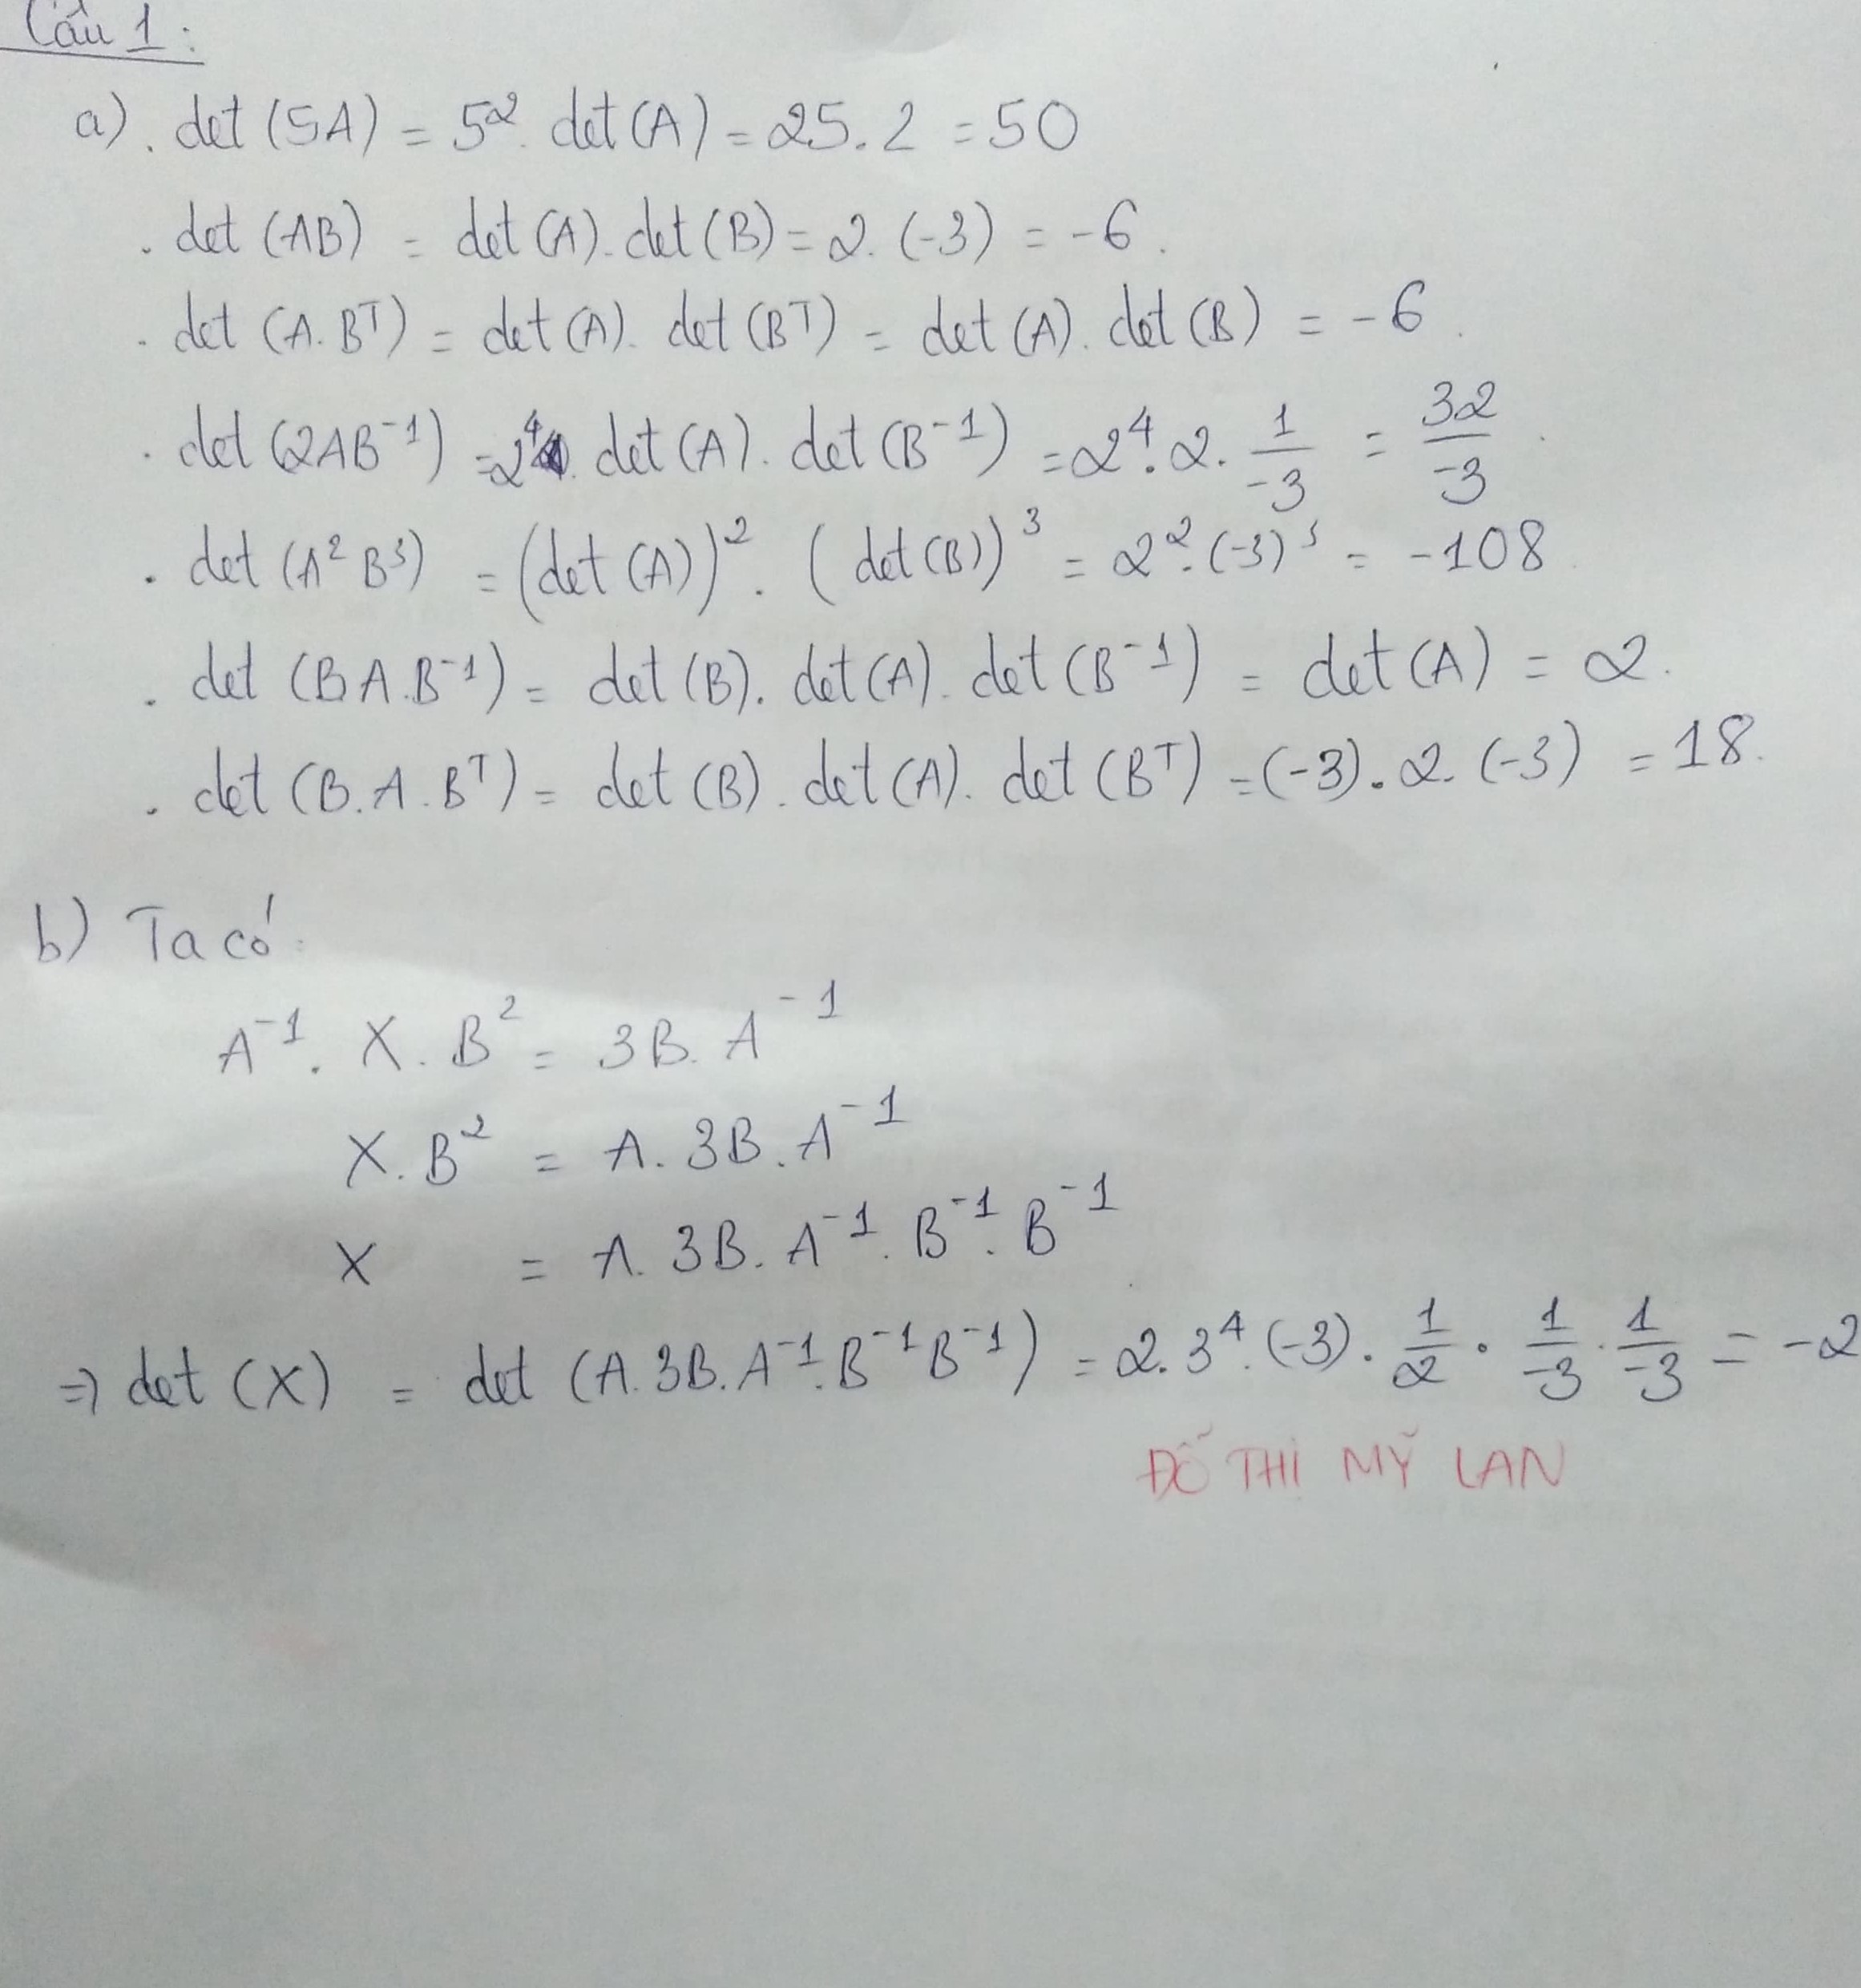 Câu 1:
a). det (5A) = 5². det (A) = 25. 2 = 50
. det (AB) = det (A). det (B) = 2. (-3) = -6.
. det (A. Bᵀ) = det (A). det (Bᵀ) = det (A). det (B) = -6.
. det (2AB⁻¹) = 2⁴. det (A). det (B⁻¹) = 2⁴. 2. 1/-3 = 32/-3.
. det (A² B³) = (det (A))². (det (B))³ = 2². (-3)³ = -108
. det (B A. B⁻¹) = det (B). det (A). det (B⁻¹) = det (A) = 2.
. det (B. A. Bᵀ) = det (B). det (A). det (Bᵀ) = (-3). 2. (-3) = 18.
b) Ta có:
A⁻¹. X. B² = 3B. A⁻¹
X. B² = A. 3B. A⁻¹
X = A. 3B. A⁻¹. B⁻¹. B⁻¹
=> det (X) = det (A. 3B. A⁻¹. B⁻¹ B⁻¹) = 2. 3⁴. (-3). 1/2 . 1/-3 . 1/-3 = -2
ĐỖ THỊ MỸ LAN